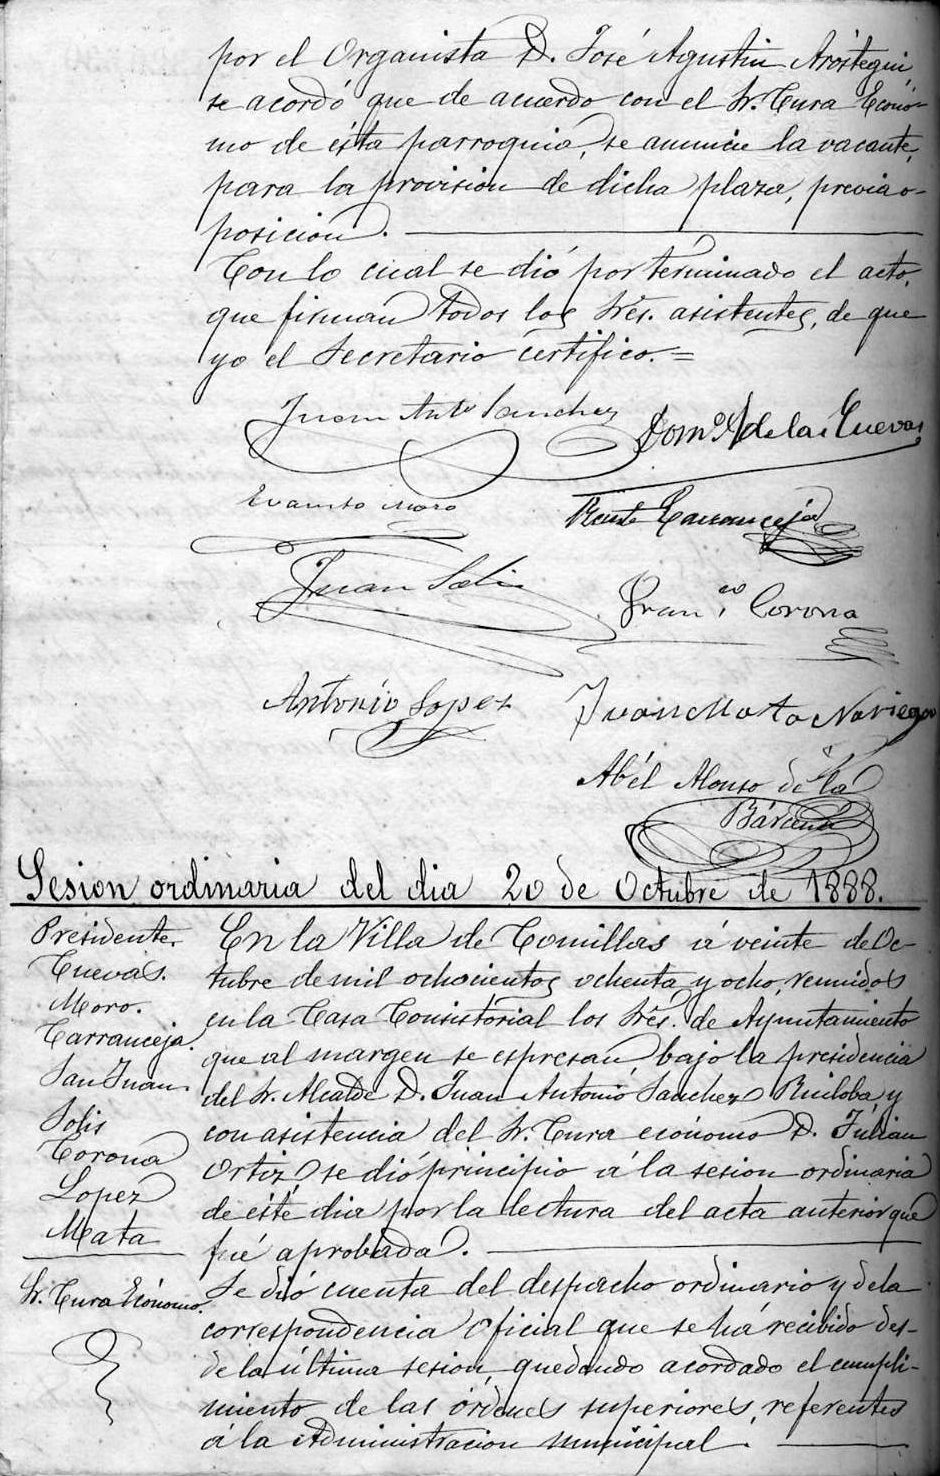 por el Organista D. José Agustin Aróstegui
se acordó que de acuerdo con el Sr. Cura Econó-
mo de ésta parroquia, se anuncie la vacante,
para la provision de dicha plaza, previa o-
posicion.
Con lo cual se dió por terminado el acto,
que firman todos los Srēs. asistentes, de que
yo el Secretario certifico. =
Juan Antº Sanchez
Domº de las Cuevas
Evaristo Moro
Carranceja
Juan Solis
Franco. Corona
Antonio Lopez
Juan Mata Noriega
Abél Alonso de la
Bárcena
Sesion ordinaria del dia 20 de Octubre de 1888.
Presidente.
Cuevas.
Moro.
Carranceja.
San Juan
Solis
Corona
Lopez
Mata
Sr. Cura Ecónomo.
En la Villa de Comillas á veinte de Oc-
tubre de mil ochocientos ochenta y ocho, reunidos
en la Casa Consistorial los Srēs. de Ayuntamiento
que al margen se espresan bajo la presidencia
del Sr. Alcalde D. Juan Antonio Sanchez Ruiloba y
con asistencia del Sr. Cura ecónomo D. Julian
Ortiz se dió principio á la sesion ordinaria
de éste dia por la lectura del acta anterior que
fué aprobada.
Se dió cuenta del despacho ordinario y de la
correspondencia oficial que se há recibido des-
de la última sesion, quedando acordado el cumpli-
miento de las órdenes superiores, referentes
á la Administracion municipal.